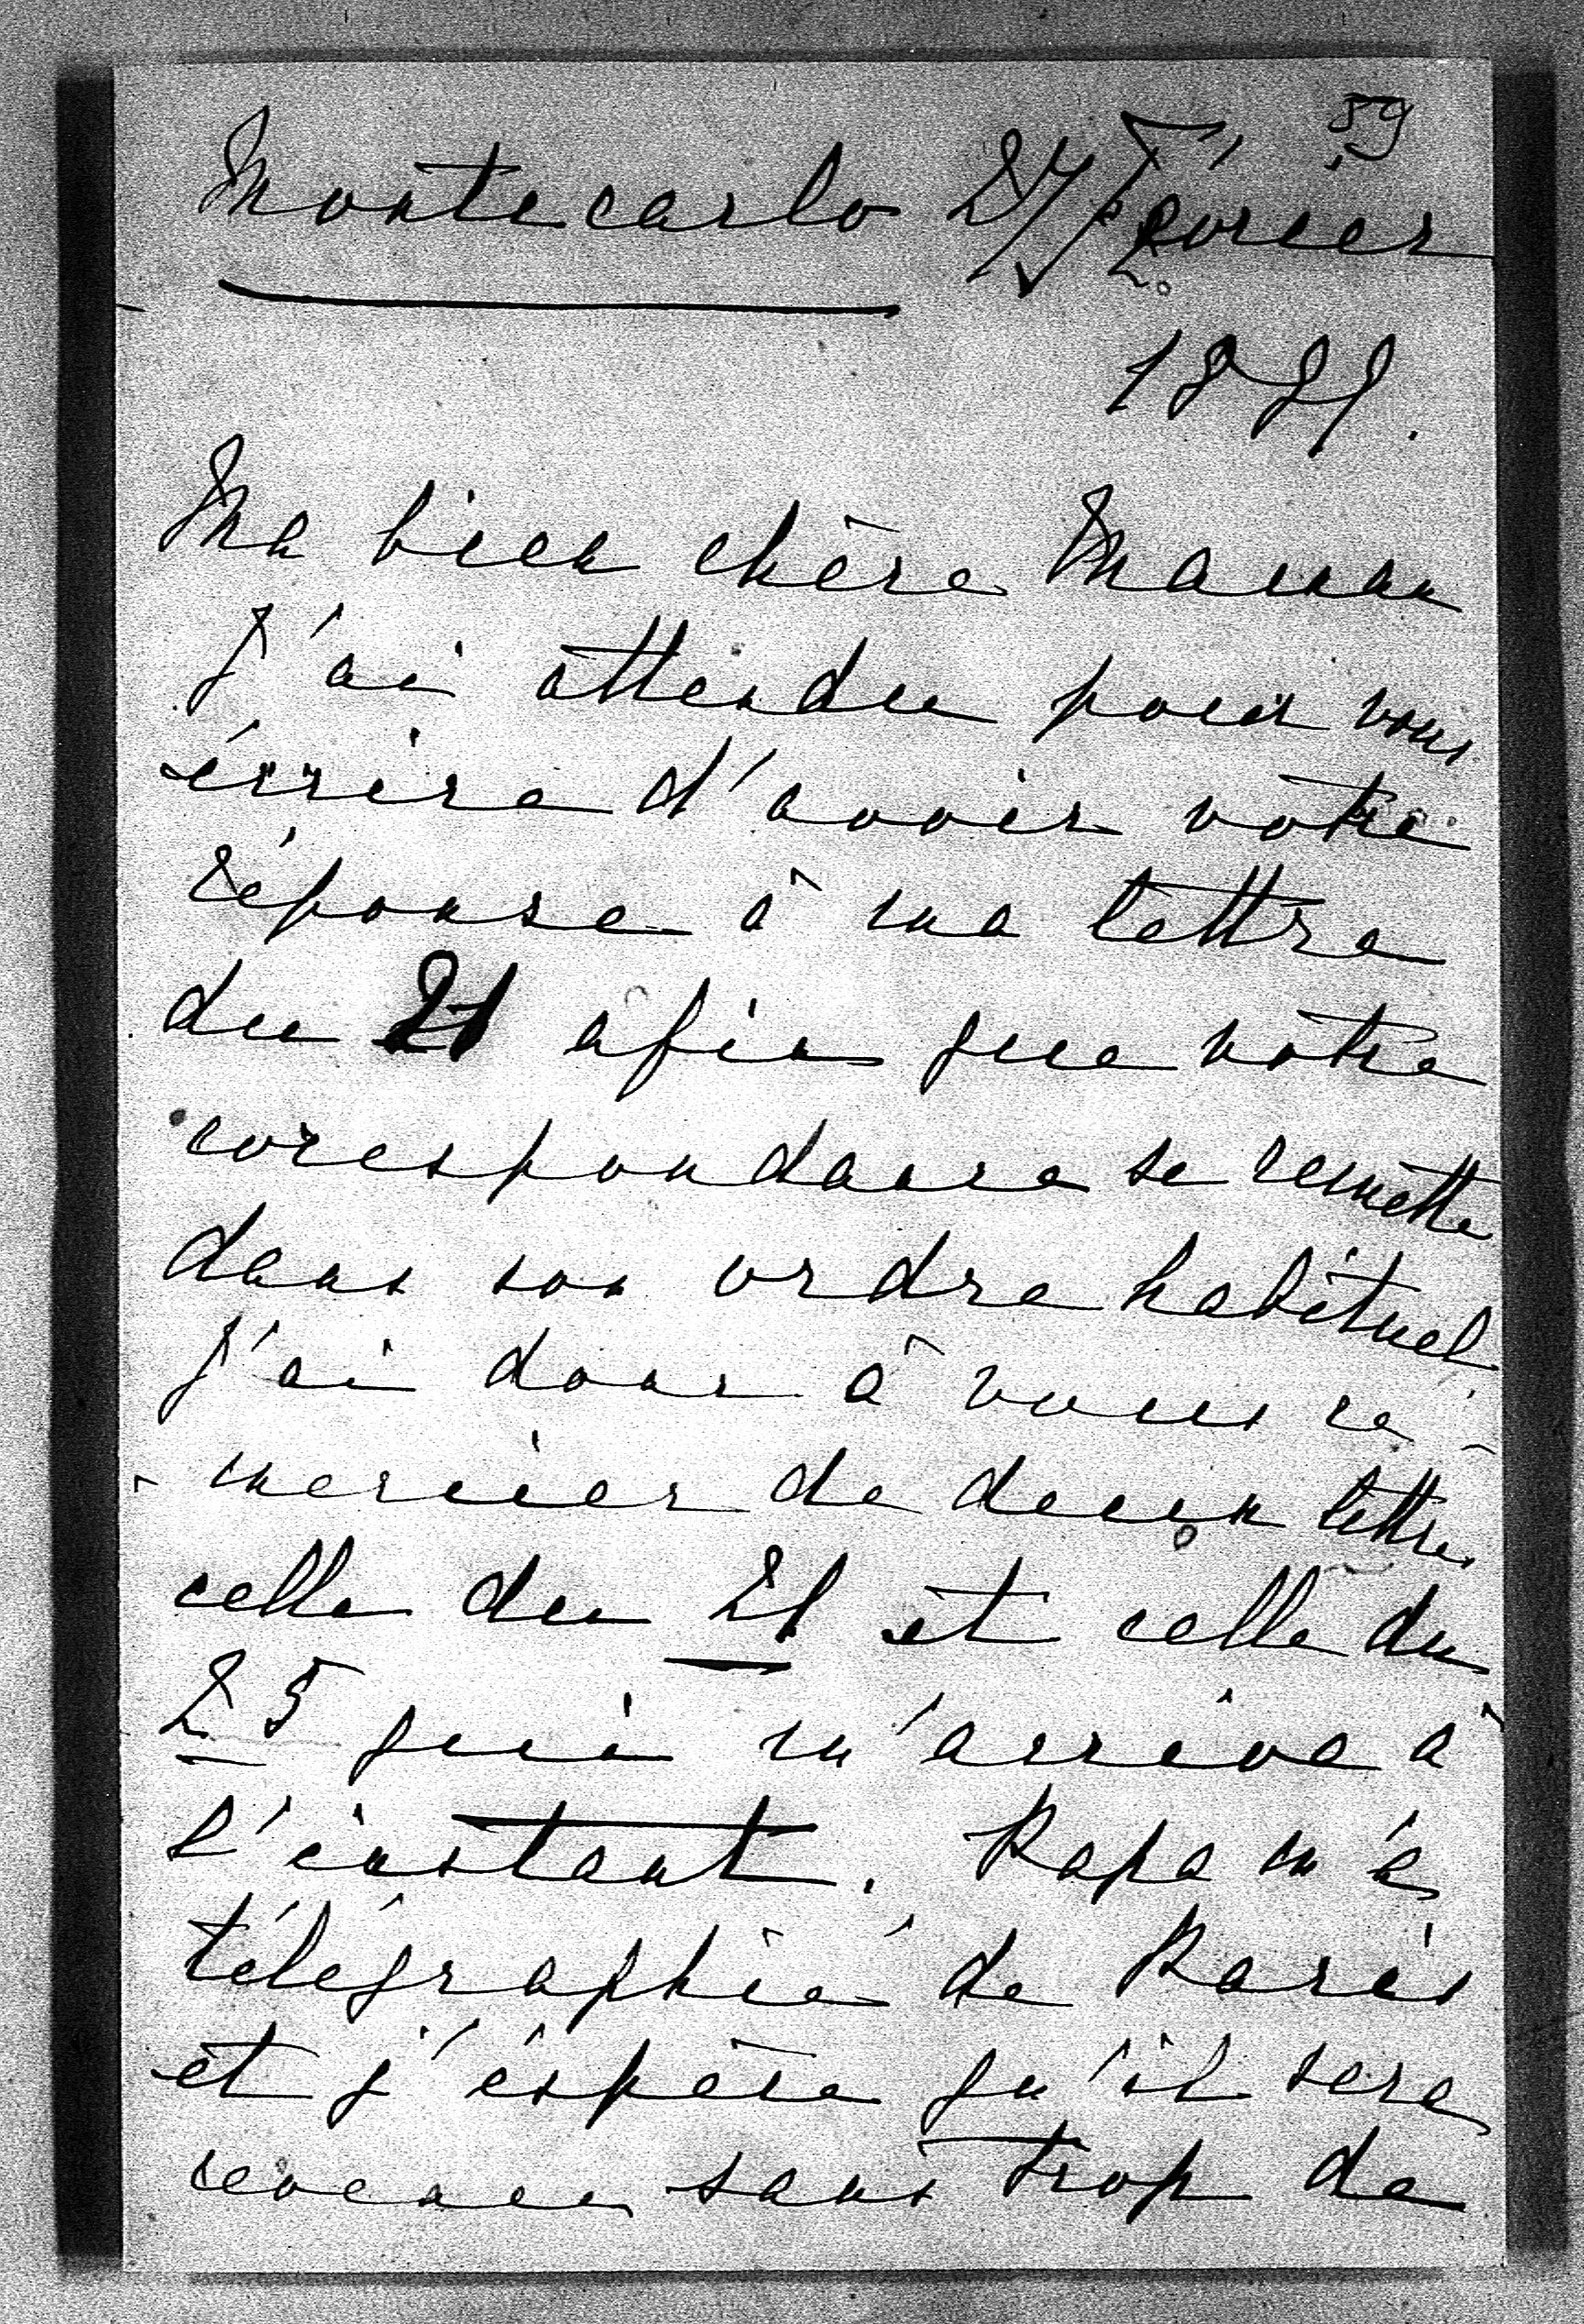 59
Montecarlo 27 Février
1881.
Ma bien chère Maman
J'ai attendu pour vous
écrire d'avoir votre
réponse à ma lettre
du 21 afin que notre
corespondance se remette
dans son ordre habituel.
J'ai donc à vous re
mercier de deux lettres
celle du 21 et celle du
25 qui m'arrive à
l'instant. Papa m'a
télégraphié de Paris
et j'éspère qu'il sera
revenu sans trop de